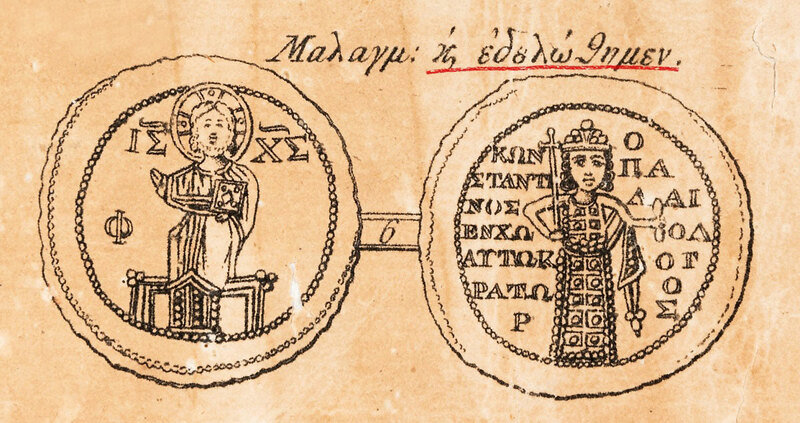 Μαλαγμ: ϗ ἐδελώθημεν.
ΙΣ ΧΣ
Φ
ΚΩΝ
ΣΤΑΝΤΙ
ΝΟΣ
ΕΝΧΩ
ΑΥΤΩΚ
ΡΑΤΩ
Ρ
Ο
ΠΑ
ΛΑΙ
ΟΛ
ΟΓ
ΟΣ
6